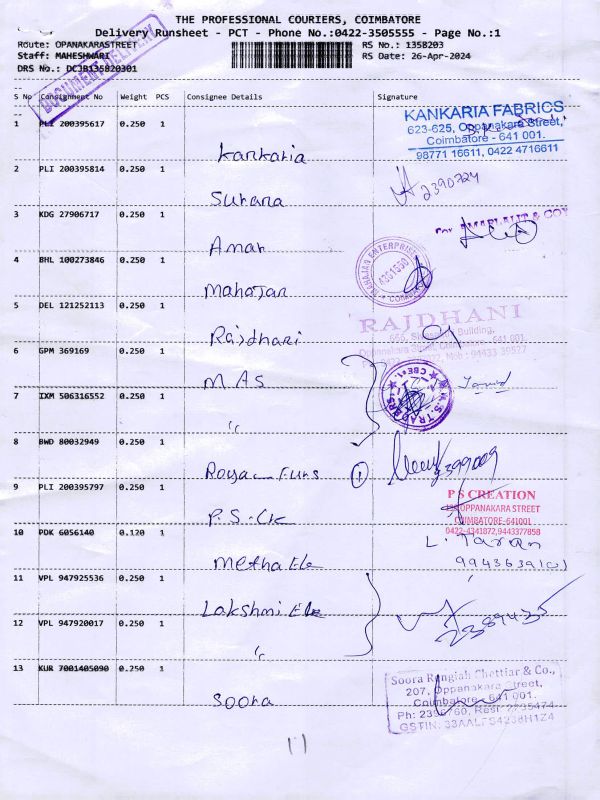 THE PROFESSIONAL COURIERS, COIMBATORE
Delivery Runsheet - PCT - Phone No.:0422-3505555 - Page No.:1
Route: OPANAKARASTREET
RS No.: 1358203
Staff: MAHESHWARI
RS Date: 26-Apr-2024
DRS No.: DCJB135820301
DOCUMENT DELIVERY
S No Consignment No Weight PCS Consignee Details Signature
1 PLI 200395617 0.250 1
Kankaria
KANKARIA FABRICS
623-625, Oppanakara Street,
Coimbatore - 641 001.
98771 16611, 0422 4716611
2 PLI 200395814 0.250 1
Surana
2390724
3 KDG 27906717 0.250 1
Amar
4 BHL 100273846 0.250 1
Mahajan
MAHAJAN ENTERPRISE
4361550
5 DEL 121252113 0.250 1
Rajdhari
RAJDHANI
6 GPM 369169 0.250 1
M.AS
7 IXM 506316552 0.250 1
"
8 BWD 80032949 0.250 1
Royal Furs
1
2399009
9 PLI 200395797 0.250 1
P.S.CK
P S CREATION
OPPANAKARA STREET
COIMBATORE-641001
0422-4341872,9443377858
10 PDK 6056140 0.120 1
Metha Ele
L. Taran
11 VPL 947925536 0.250 1
Lakshmi Ele
12 VPL 947920017 0.250 1
"
13 KUR 7001405090 0.250 1
Soora
Soora Rengiah Chettiar & Co.,
207, Oppanakara Street,
Coimbatore - 641 001.
11